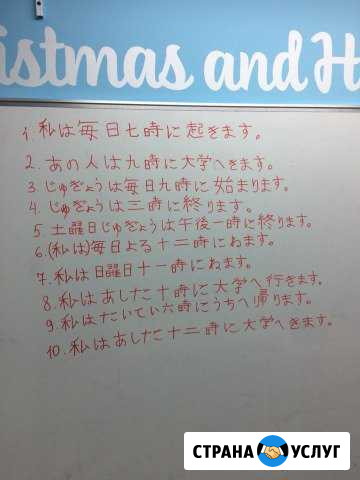 istmas and H
1. 私は毎日七時に起きます。
2. あの人は九時に大学へきます。
3 じゅぎょうは毎日九時に始まります。
4. じゅぎょうは三時に終ります。
5 土曜日じゅぎょうは午後一時に終ります。
6.(私は)毎日よる十二時にねます。
7. 私は日曜日十一時にねます。
8. 私はあした十時に大学へ行きます。
9. 私はたいてい六時にうちへ帰ります。
10. 私はあした十二時に大学へきます。
СТРАНА УСЛУГ